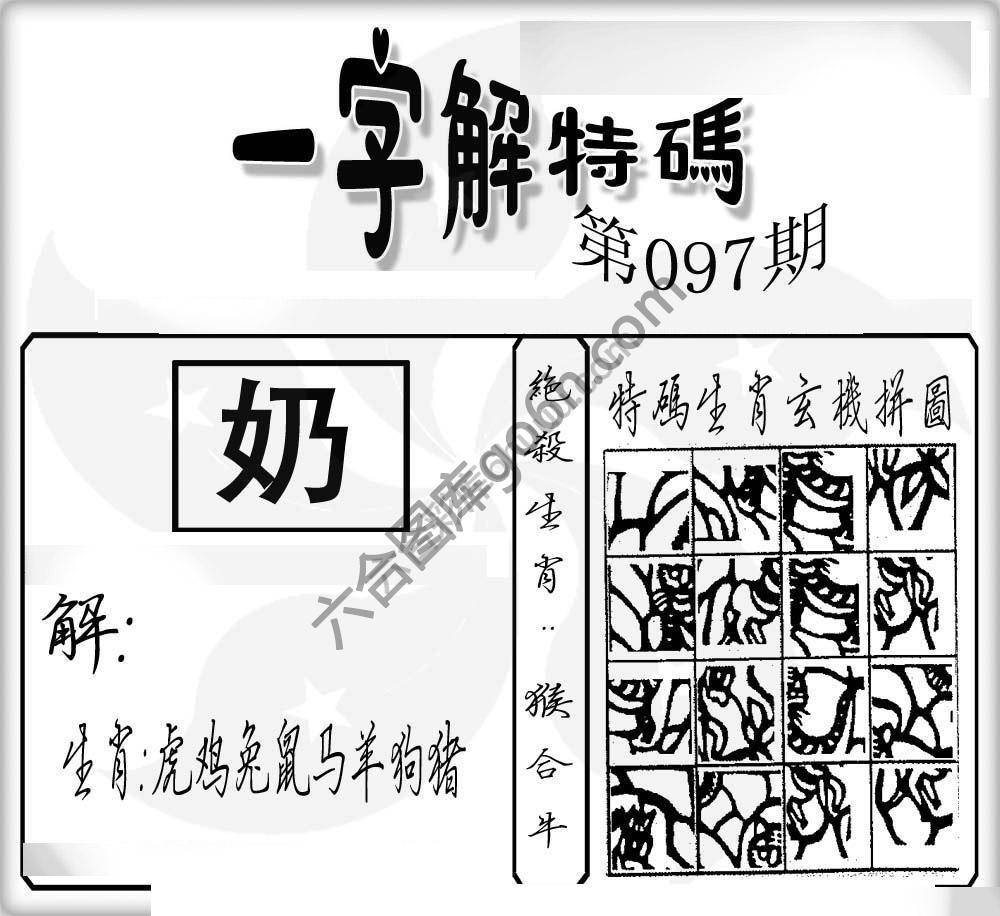 一字解特碼
第097期
奶
解:
生肖:虎鸡兔鼠马羊狗猪
絶殺生肖:猴合牛
特碼生肖玄機拼圖
六合图库go6h.com